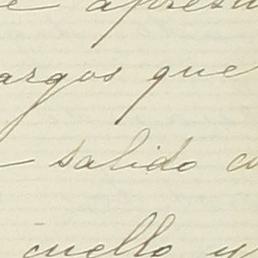 e apresu
argos que
salido co
cuello y